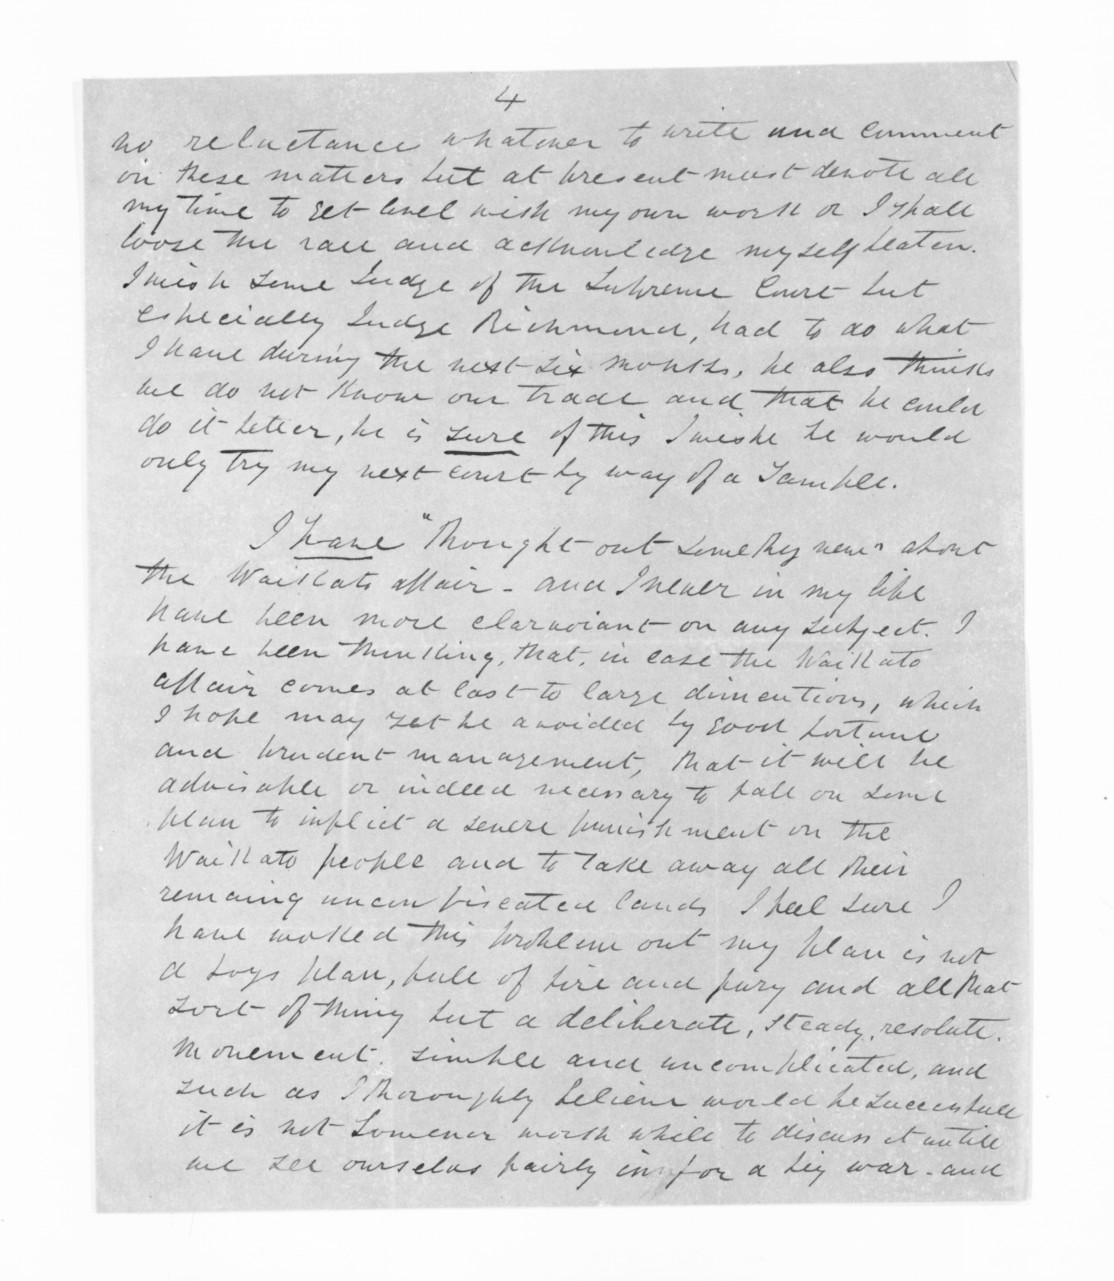 4
no reluctance whatever to write and comment
on these matters but at present must devote all
my time to get level with my own work or I shall
loose the race and acknowledge myself beaten.
I wish some Judge of the Supreme Court but
especially Judge Richmond, had to do what
I have during the next six months, he also thinks
we do not know our trade and that he could
do it better, he is sure of this I wish he would
only try my next court by way of a sample.
I have "thought out something new" about
the Waikato affair - and I never in my life
have been more claravoiant on any subject. I
have been thinking, that, in case the Waikato
affair comes at last to large dimentions, which
I hope may yet be avoided by good fortune
and prudent management, that it will be
advisable or indeed necessary to fall on some
plan to inflict a severe punishment on the
Waikato people and to take away all their
remaing unconfiscated lands I feel sure I
have worked this problem out my plan is not
a boys plan, full of fire and fury and all that
sort of thing but a deliberate, steady, resolute.
movement. simple and uncomplicated, and
such as I thoroughly believe would be successfull
it is not however worth while to discuss it untill
we see ourselves fairly in for a big war - and